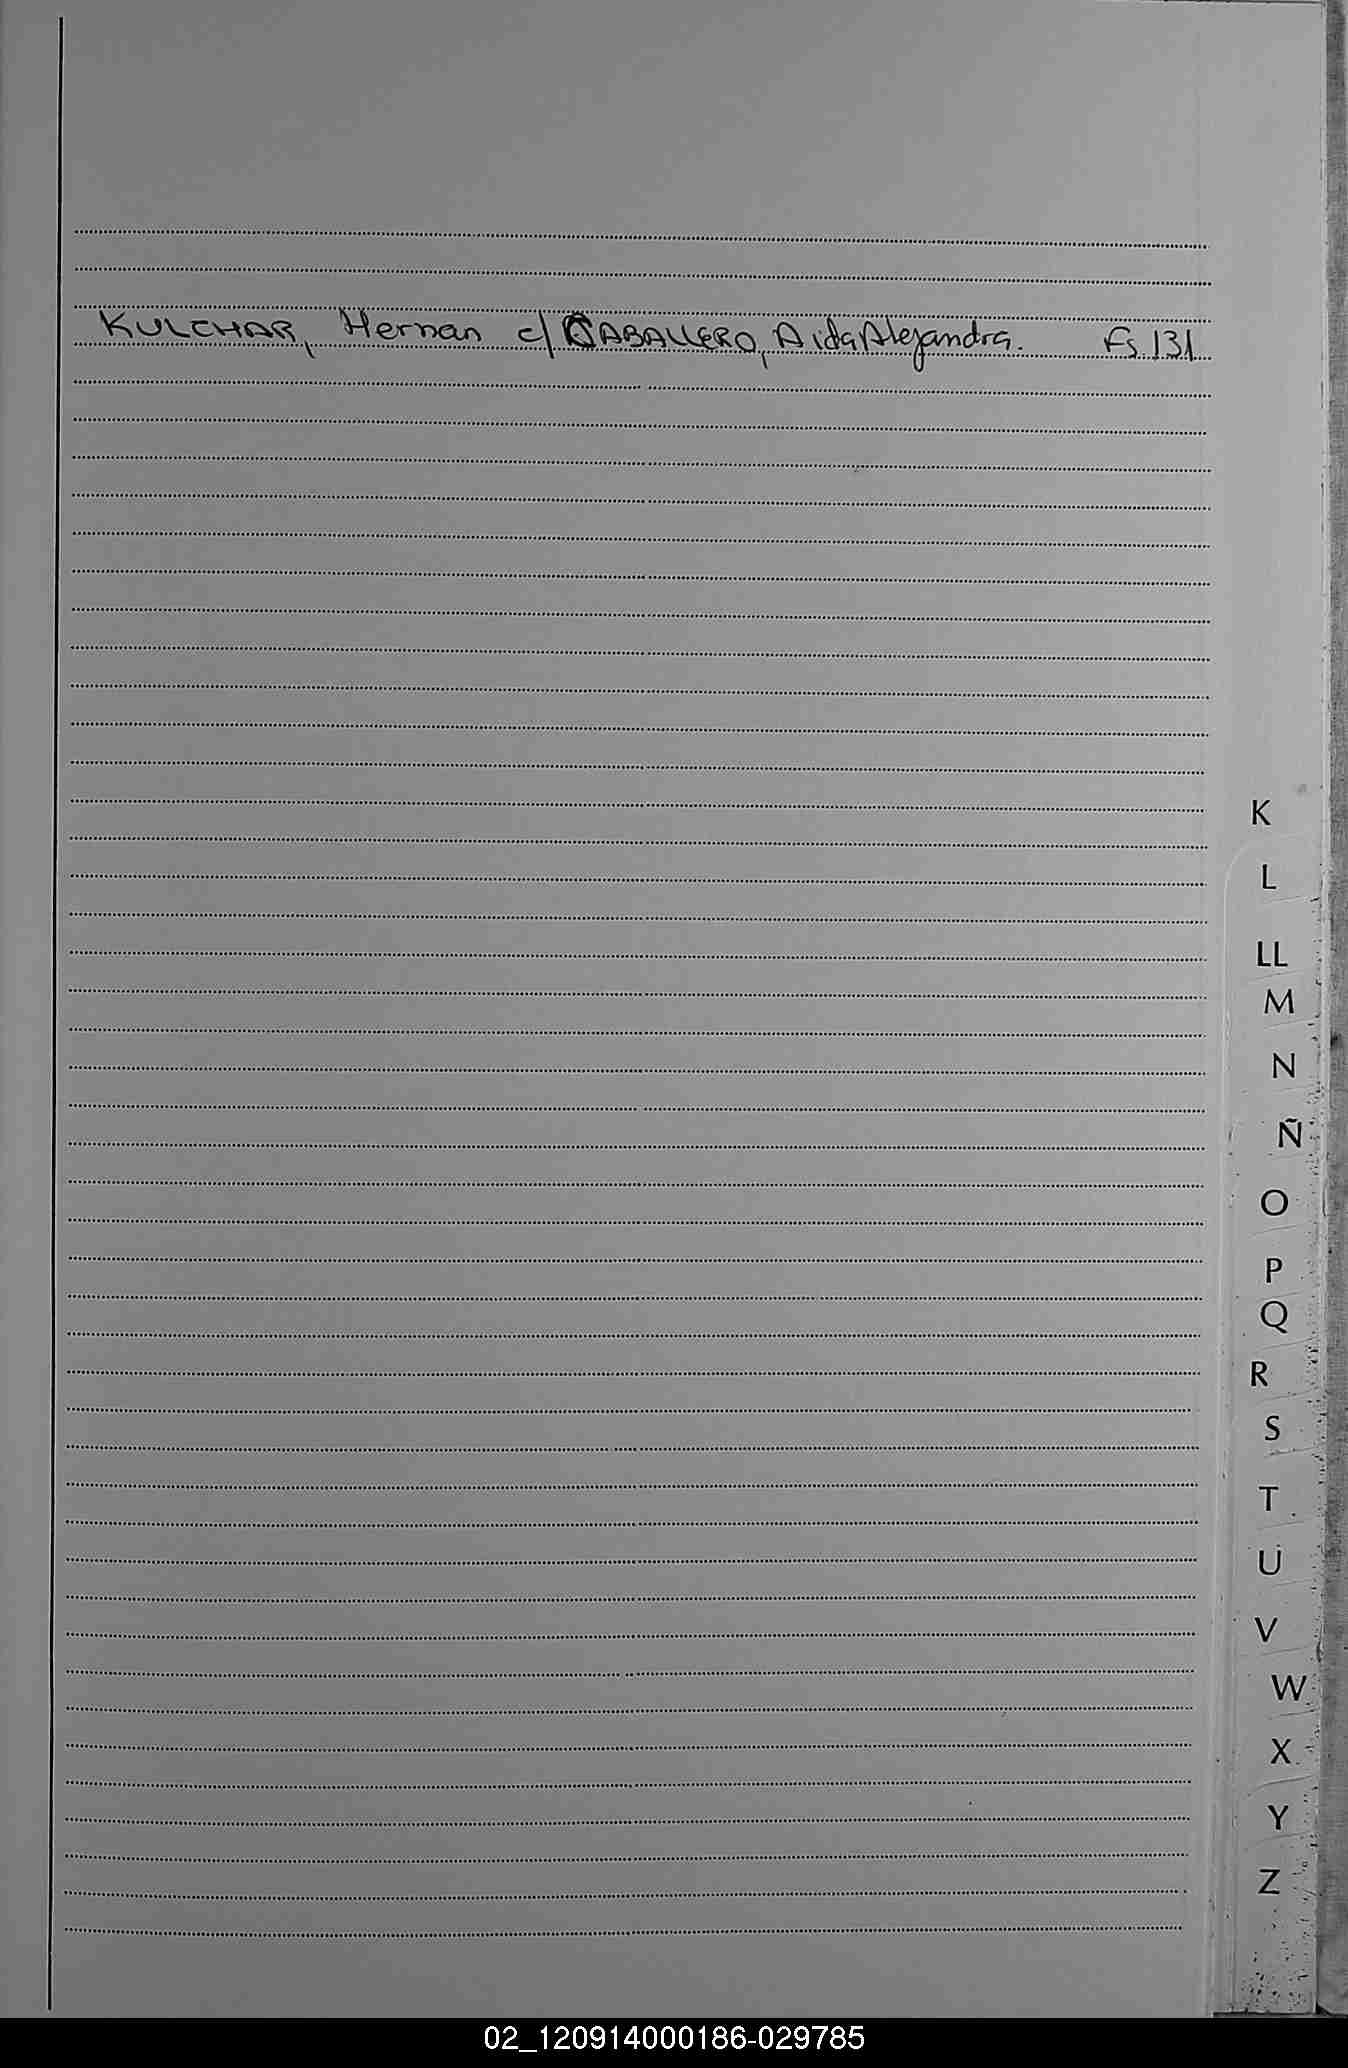 KULCHAR, Hernan c/ CABALLERO, Aida Alejandra. Fs. 131
K
L
LL
M
N
Ñ
O
P
Q
R
S
T
U
V
W
X
Y
Z
02_120914000186-029785